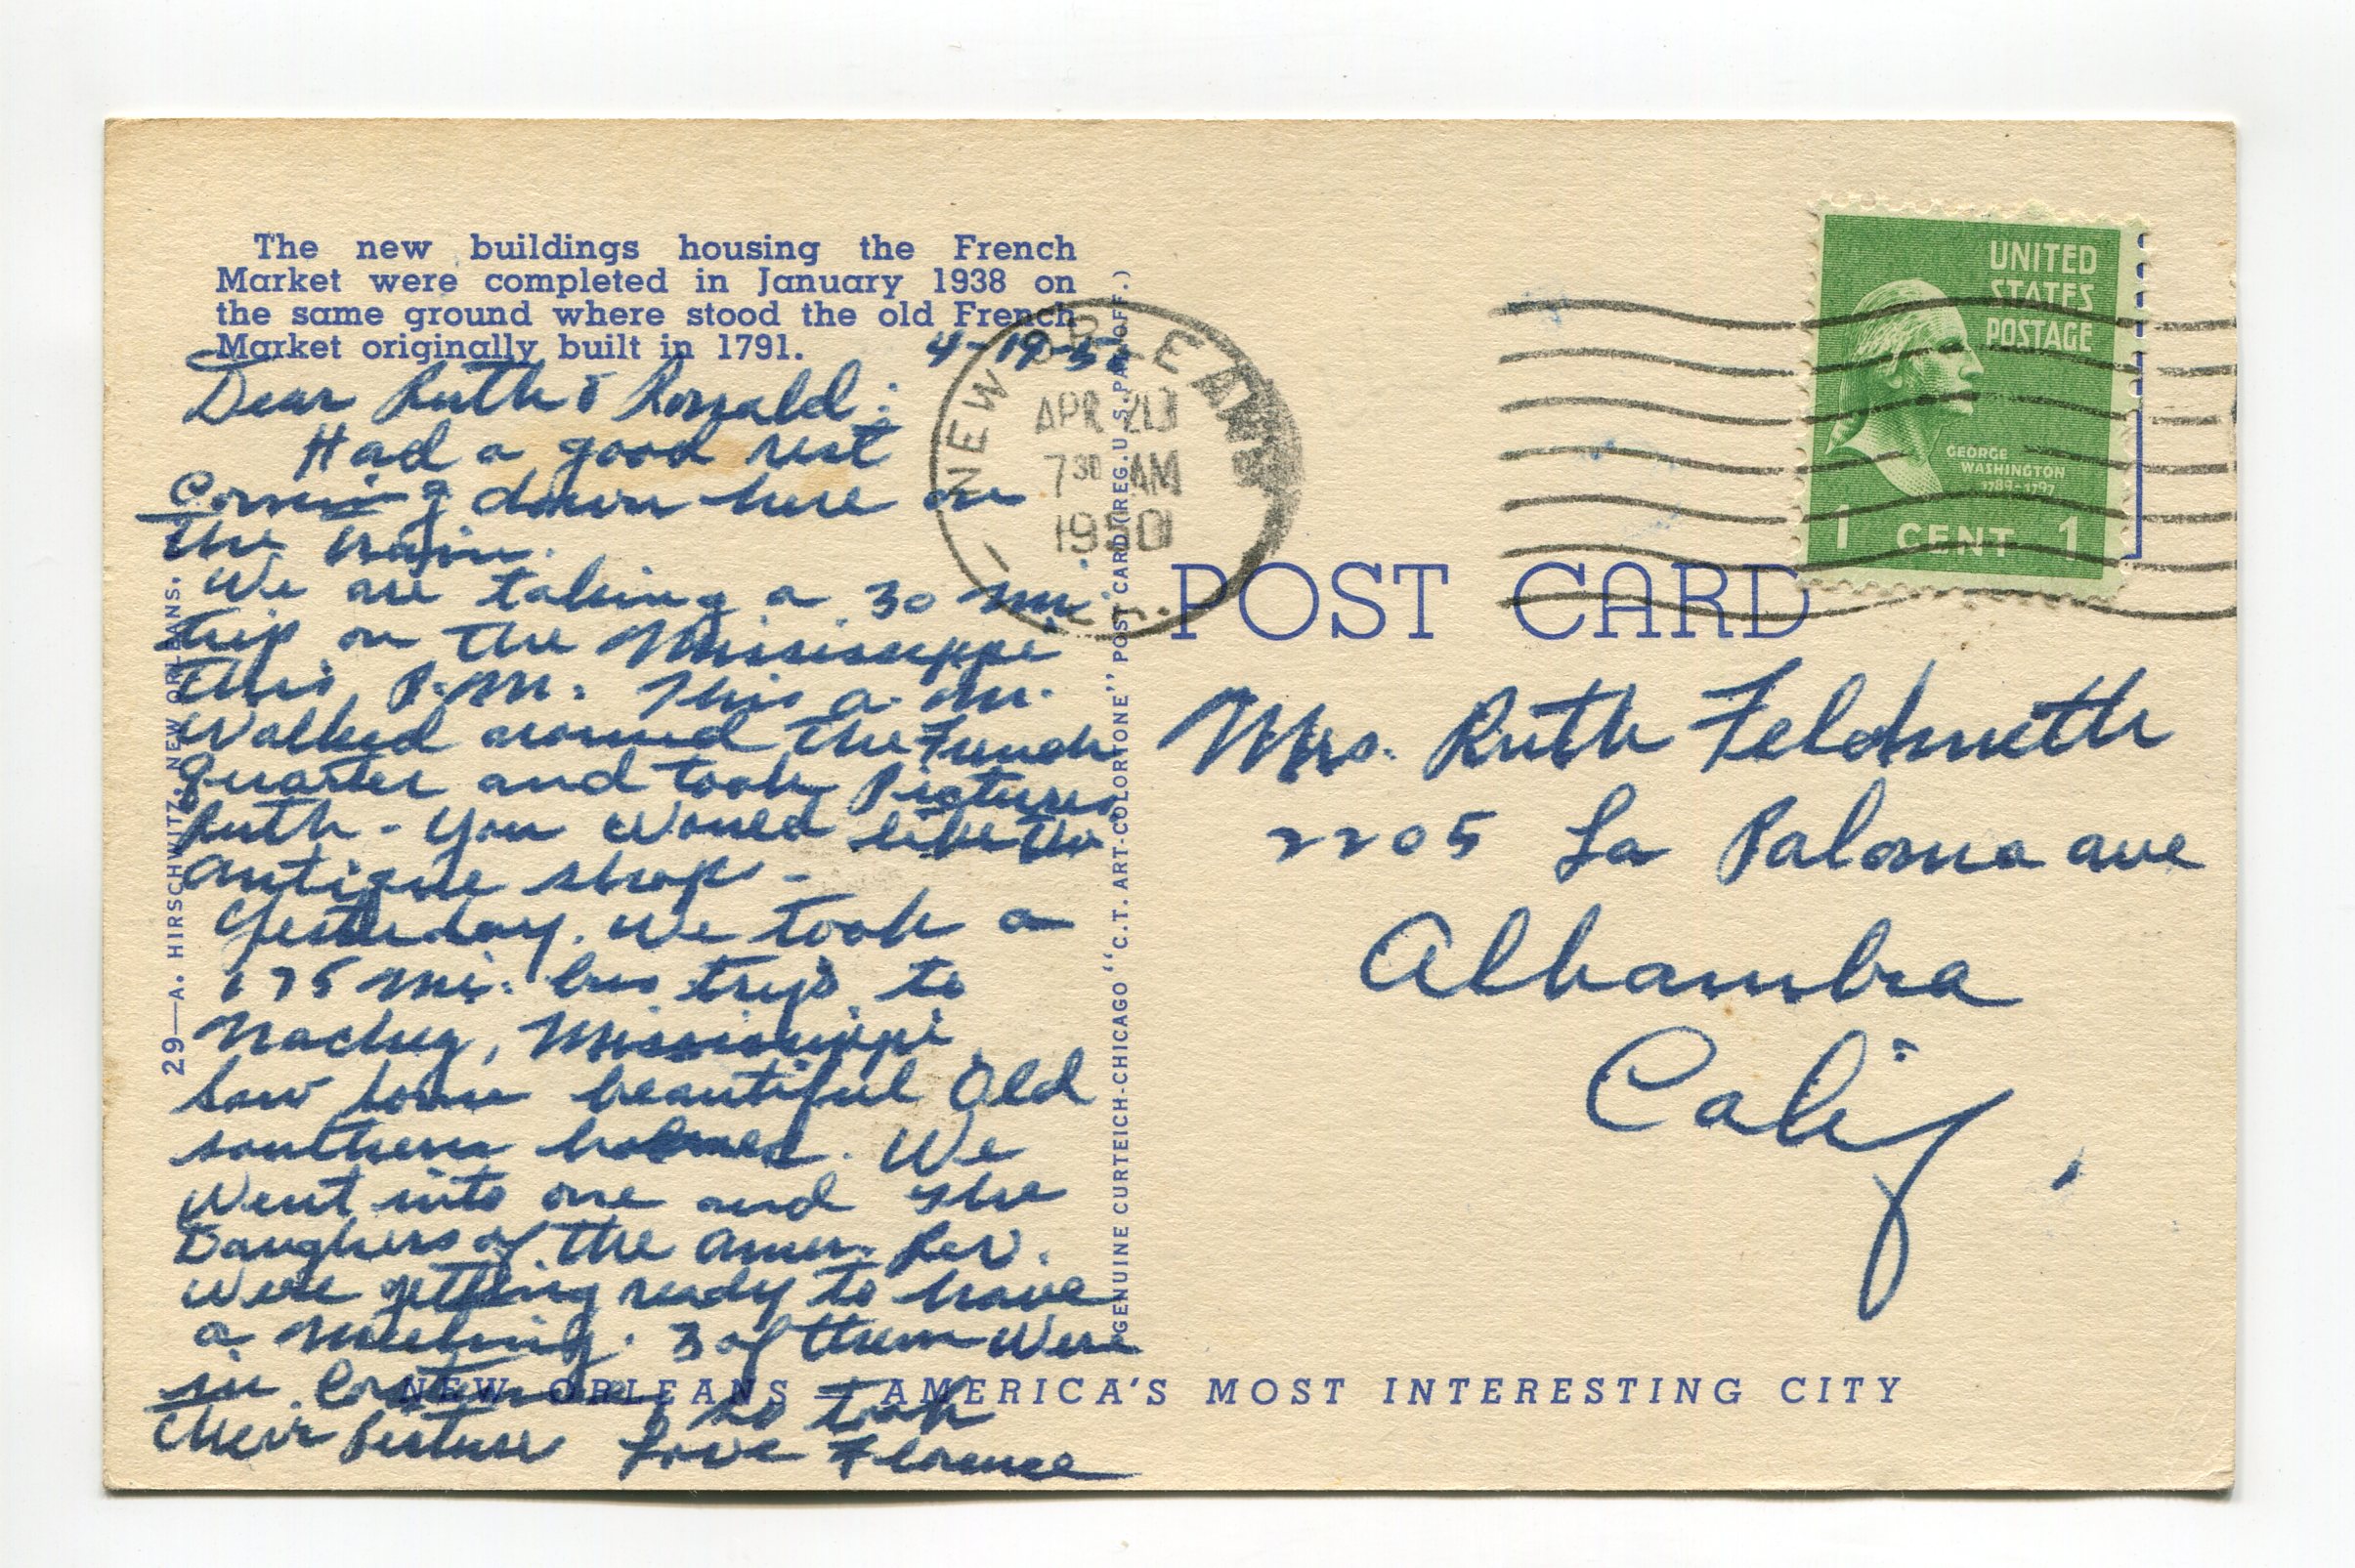 The new buildings housing the French
Market were completed in January 1938 on
the same ground where stood the old French
Market originally built in 1791.
4-19-50
Dear Ruth & Ronald:
Had a good rest
Coming down here on
the train.
We are taking a 30 mi.
trip on the Mississippi
this P.M. This a.m.
Walked around the French
Quarter and took Pictures
Ruth - You would like the
antique shop -
Yesterday. We took a
175 mi. bus trip to
Nachez, Mississippi
Saw some beautiful Old
southern homes. We
Went into one and the
Daughers of the Amer. Rev.
were getting ready to have
a meeting. 3 of them Were
in so took
their Picture Love Florence
29—A. HIRSCHWITZ, NEW ORLEANS.
GENUINE CURTEICH-CHICAGO "C.T. ART-COLORTONE" POST CARD (REG. U.S. PAT. OFF.)
NEW ORLEANS
APR 20
7 30 AM
1950
LA.
UNITED
STATES
POSTAGE
GEORGE
WASHINGTON
1789-1797
1 CENT 1
POST CARD
Mrs. Ruth Feldmeth
2205 La Paloma ave
Alhambra
Calif.
NEW ORLEANS — AMERICA'S MOST INTERESTING CITY